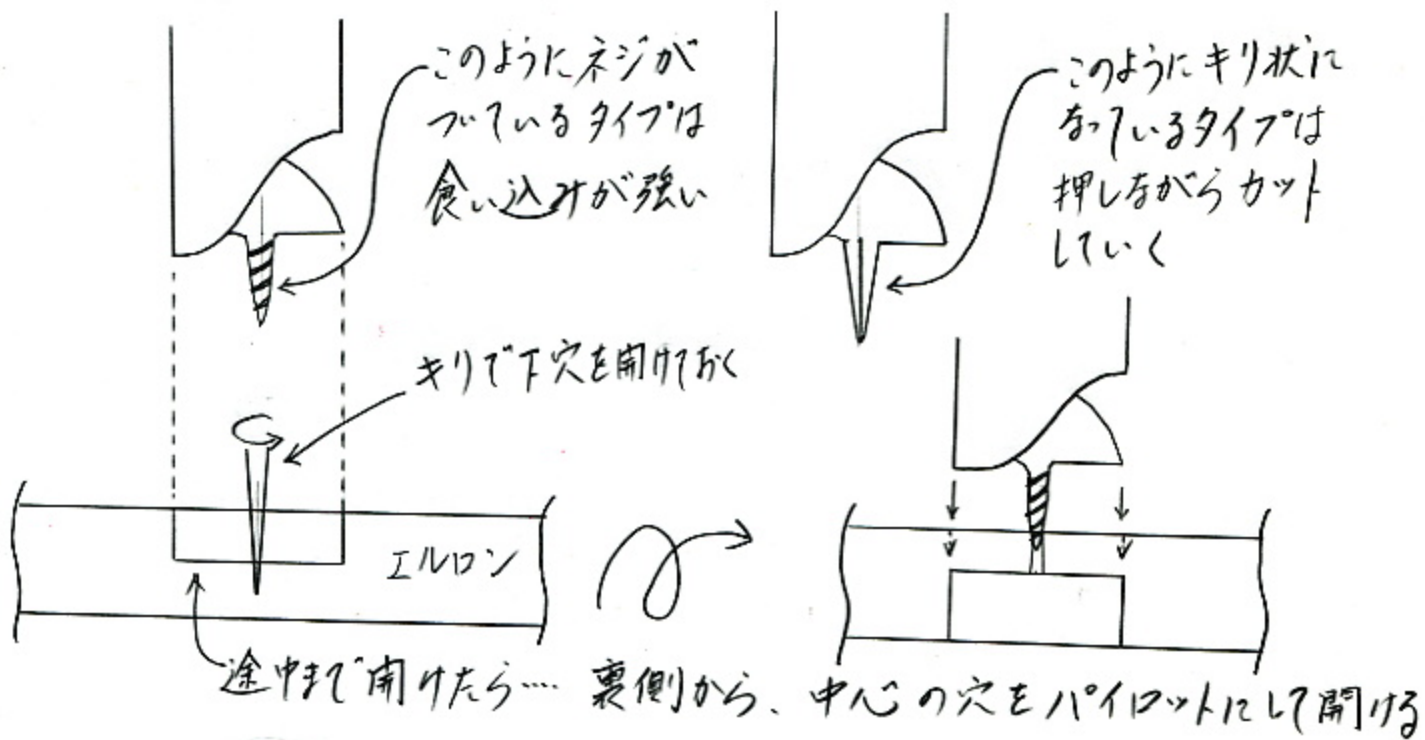 このようにネジが
ついているタイプは
食い込みが強い
このようにキリ状に
なっているタイプは
押しながらカット
していく
キリで下穴を開けておく
エルロン
途中まで開けたら…. 裏側から、中心の穴をパイロットにして開ける